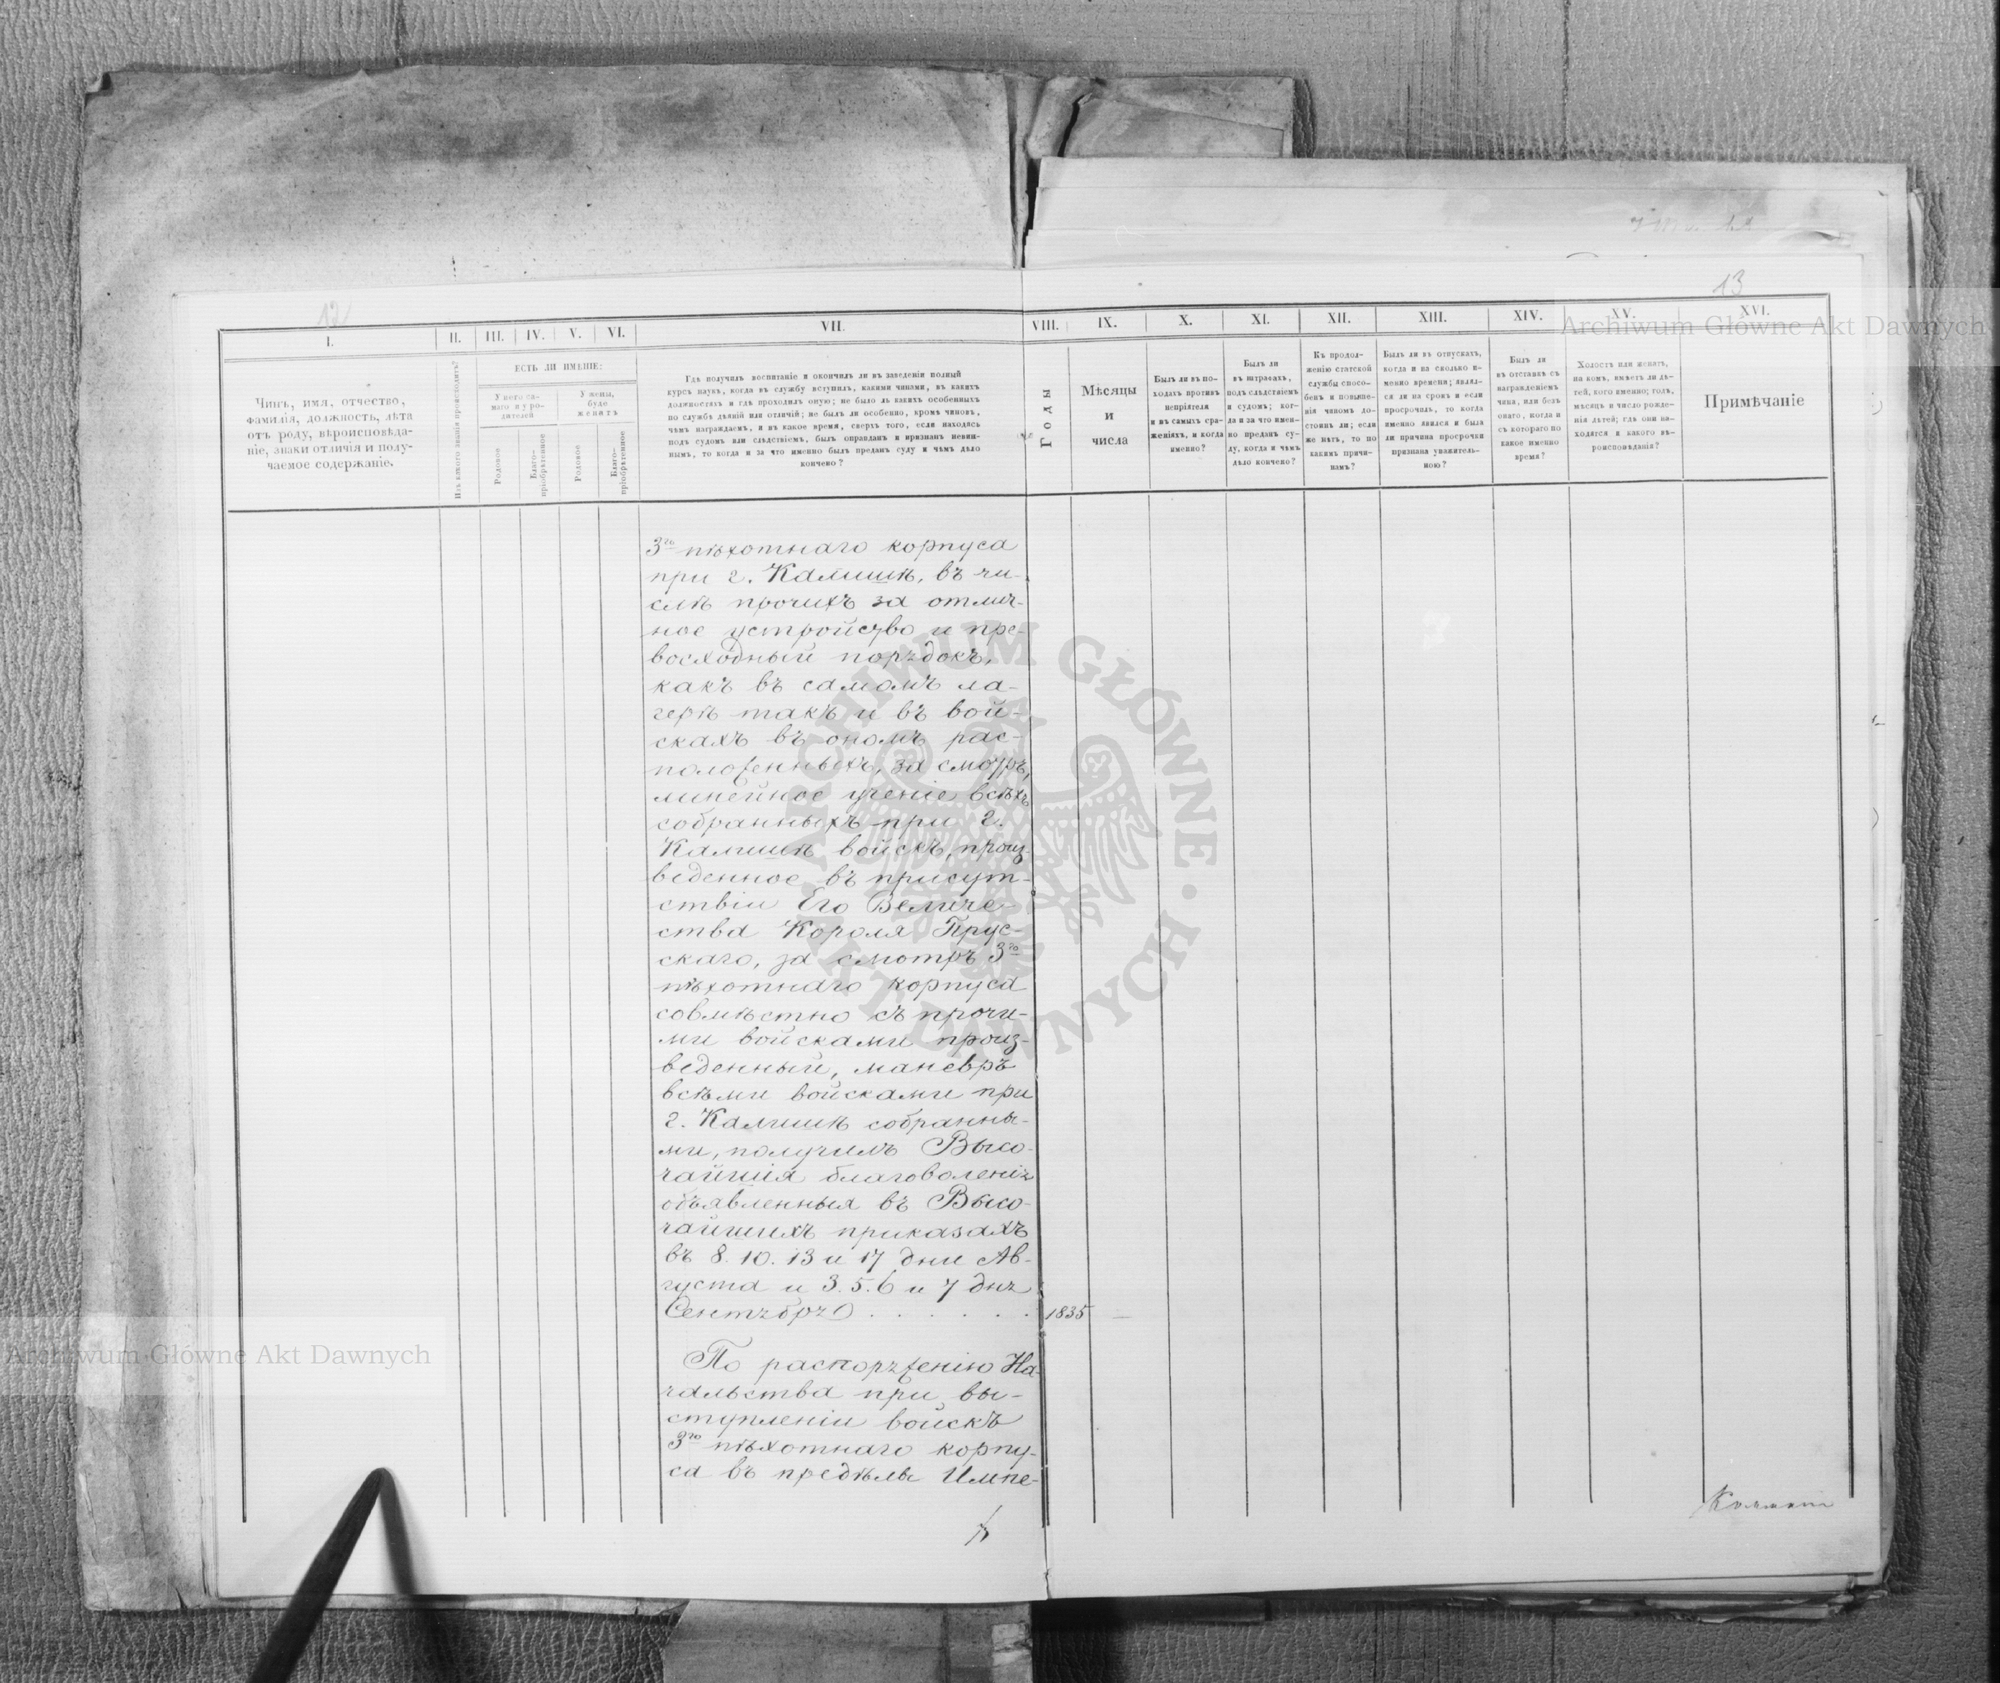 12
13
I.
II.
III.
IV.
V.
VI.
VII.
VIII.
IX.
X.
XI.
XII.
XIII.
XIV.
XV.
XVI.
Archiwum Główne Akt Dawnych
Чинъ, имя, отчество,
фамилія, должность, лѣта
отъ роду, вѣроисповѣда-
ніе, знаки отличія и полу-
чаемое содержаніе.
Изъ какого званія происходитъ?
ЕСТЬ ЛИ ИМѢНІЕ:
У него са-
маго и у ро-
дителей
У жены,
буде
женатъ
Родовое
Благо-
пріобрѣтенное
Родовое
Благо-
пріобрѣтенное
Гдѣ получилъ воспитаніе и окончилъ ли въ заведеніи полный
курсъ наукъ, когда въ службу вступилъ, какими чинами, въ какихъ
должностяхъ и гдѣ проходилъ оную; не было ль какихъ особенныхъ
по службѣ дѣяній или отличій; не былъ ли особенно, кромѣ чиновъ,
чѣмъ награждаемъ, и въ какое время, сверхъ того, если находясь
подъ судомъ или слѣдствіемъ, былъ оправданъ и признанъ невин-
нымъ, то когда и за что именно былъ преданъ суду и чѣмъ дѣло
кончено?
Годы
Мѣсяцы
и
числа
Былъ ли въ по-
ходахъ противъ
непріятеля
и въ самыхъ сра-
женіяхъ, и когда
именно?
Былъ ли
въ штрафахъ,
подъ слѣдствіемъ
и судомъ; ког-
да и за что имен-
но преданъ су-
ду, когда и чѣмъ
дѣло кончено?
Къ продол-
женію статской
службы спосо-
бенъ и повыше-
нія чиномъ до-
стоинъ ли; если
же нѣтъ, то по
какимъ причи-
намъ?
Былъ ли въ отпускахъ,
когда и на сколько и-
менно времени; являл-
ся ли на срокъ и если
просрочилъ, то когда
именно явился и была
ли причина просрочки
признана уважитель-
ною?
Былъ ли
въ отставкѣ съ
награжденіемъ
чина, или безъ
онаго, когда и
съ котораго по
какое именно
время?
Холостъ или женатъ,
на комъ, имѣетъ ли дѣ-
тей, кого именно; годъ,
мѣсяцъ и число рожде-
нія дѣтей; гдѣ они на-
ходятся и какого вѣ-
роисповѣданія?
Примѣчаніе
3го пѣхотнаго корпуса
при г. Калишѣ, въ чи-
слѣ прочихъ за отлич-
ное устройство и пре-
восходный порядокъ,
какъ въ самомъ ла-
герѣ такъ и въ вой-
скахъ въ ономъ рас-
положенныхъ, за смотръ,
линейное ученіе всѣхъ
собранныхъ при г.
Калишѣ войскъ, произ-
веденное въ присут-
ствіи Его Величе-
ства Короля Прус-
скаго, за смотръ 3го
пѣхотнаго корпуса
совмѣстно съ прочи-
ми войсками произ-
веденный, маневръ
всѣми войсками при
г. Калишѣ собранны-
ми, получилъ Высо-
чайшія благоволенія
объявленныя въ Высо-
чайшихъ приказахъ
въ 8. 10. 13 и 17 дни Ав-
густа и 3. 5. 6 и 7 дня
Сентября . . . . . . 1835 —
По распоряженію На-
чальства при вы-
ступленіи войскъ
3го пѣхотнаго корпу-
са въ предѣлы Импе-
Archiwum Główne Akt Dawnych
ARCHIWUM GŁÓWNE AKT DAWNYCH